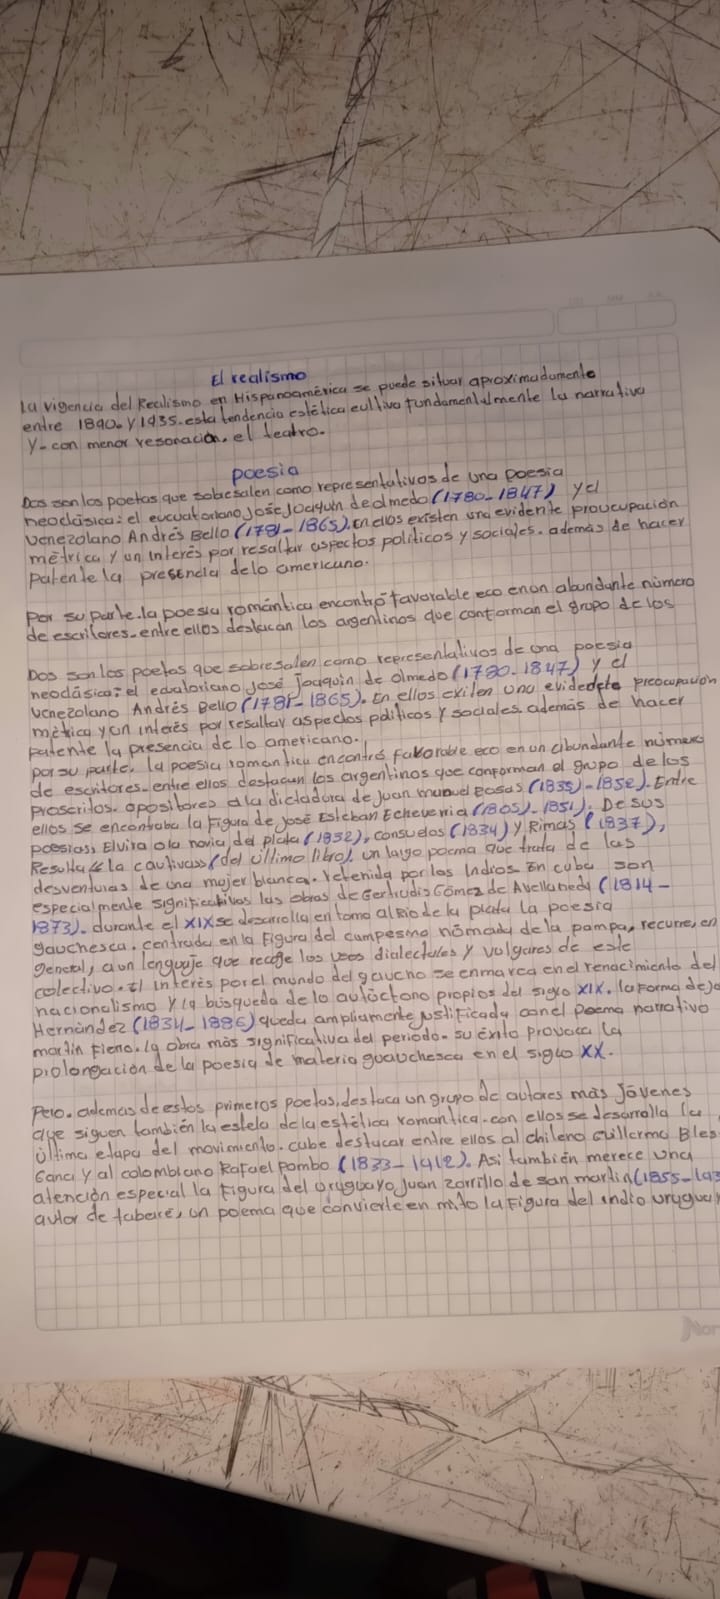 El realismo
La vigencia del Realismo en Hispanoamérica se puede situar aproximadamente
entre 1890. y 1935. esta tendencia estética cultiva fundamentalmente la narrativa
y- con menor resonación, el teatro.
poesia
Dos son los poetas que sobresalen como representativos de una poesia
neoclásica: el José Joaquin de olmedo (1780-1847) y el
venezolano Andrés Bello (1781-1865). En ellos existen una evidente proucupación
métrica y un interés por resaltar aspectos politicos y sociales. además de hacer
patente la presencia de lo americano.
Por su parte. la poesia romántica encontró favorable eco en on abundante número
de escritores- entre ellos destacan los argentinos que conforman el grupo de los
Dos son los poetas que sobresalen como representativos de una poesia
neoclásica: el ecuatoriano José Joaquin de olmedo (1780-1847) y el
venezolano Andrés Bello (1781-1865). En ellos exiten una preocupación
métrica y un interés por resaltar aspectos politicos y sociales. además de hacer
patente la presencia de lo americano.
por su parte. la poesia romantica encontró favorable eco en un abundante número
de escritores- entre ellos destacan los argentinos que conforman el grupo de los
proscritos. opositores a la dictadura de Juan manuel Rosas (1835)-1852). Entre
ellos se encontraba la Figura de José Esteban Echeverria (1805)-1851). De sus
poesias, Elvira o la novia del plata (1832), consuelos (1834) y Rimas (1837),
Resulta la cautivass (del último libro), un largo poema que trata de las
desventuras de una mujer blanca. retenida por los Indios. En cuba son
especialmente significativas las obras de Gertrudis Gómez de Avellaneda (1814-
1873). durante el XIX se desarrolla en torno al Rio de la plata la poesia
gauchesca. centrada en la Figura del campesino nómada de la pampa, recurre, en
general, a un lenguaje que recoge los usos dialectales y vulgares de este
colectivo. El interés por el mundo del gaucho se enmarca en el renacimiento del
nacionalismo y la búsqueda de lo autóctono propios del siglo XIX. la forma de Jo
Hernández (1834-1886) queda ampliamente justificada con el poema narrativo
martin Fierro. la obra más significativa del periodo. su éxito provoca la
prolongación de la poesia de materia guauchesca en el siglo XX.
Pero. ademas de estos primeros poetas, destaca un grupo de autores más Jóvenes
que siguen también la estela de la estética romantica. con ellos se desarrolla la
última etapa del movimiento. cabe destacar entre ellos al chileno Guillermo Bles
Gana y al colombiano Rafael pombo (1833-1912). Asi también merece una
atención especial la Figura del uruguayo Juan zorrillo de san martin (1855-193
autor de tabaré, un poema que convierte en mito la Figura del indio uruguay
Nor